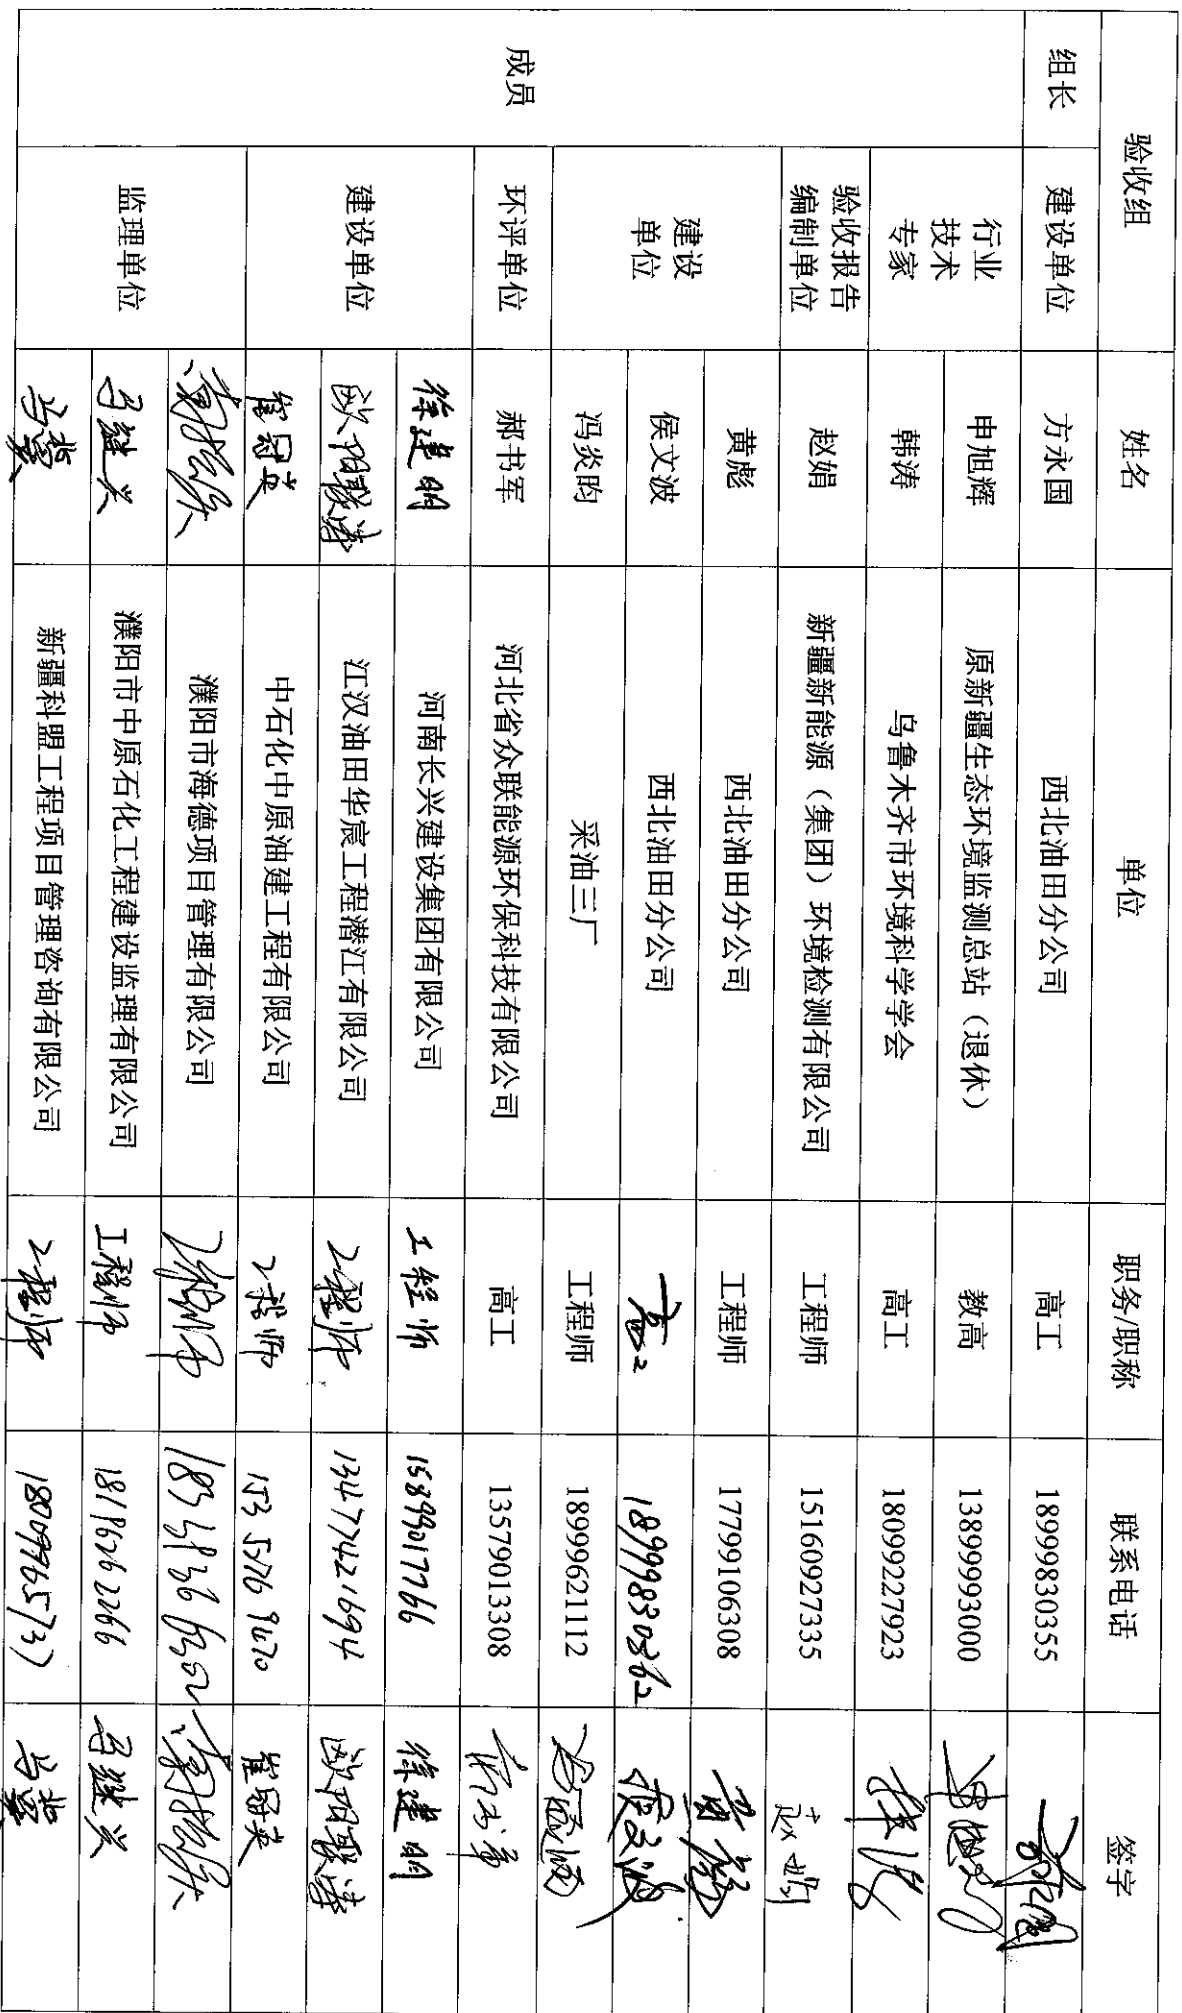 验收组 姓名 单位 职务/职称 联系电话 签字
组长 建设单位 方永国 西北油田分公司 高工 18999830355
成员
行业
技术
专家
申旭辉 原新疆生态环境监测总站（退休） 教高 13899993000
韩涛 乌鲁木齐市环境科学学会 高工 18099227923
验收报告
编制单位
赵娟 新疆新能源（集团）环境检测有限公司 工程师 15160927335 赵娟
建设
单位
黄彪 西北油田分公司 工程师 17799106308 黄彪
侯文波 西北油田分公司 高工 18999830362 侯文波
冯炎昀 采油三厂 工程师 18999621112
环评单位 郝书军 河北省众联能源环保科技有限公司 高工 13579013308
建设单位
徐建明 河南长兴建设集团有限公司 工程师 15899017766 徐建明
江汉油田华宸工程潜江有限公司 工程师 13477421694
崔冠英 中石化中原油建工程有限公司 工程师 崔冠英
监理单位
濮阳市海德项目管理有限公司 工程师
马继兴 濮阳市中原石化工程建设监理有限公司 工程师 18196262266 马继兴
新疆科盟工程项目管理咨询有限公司 工程师